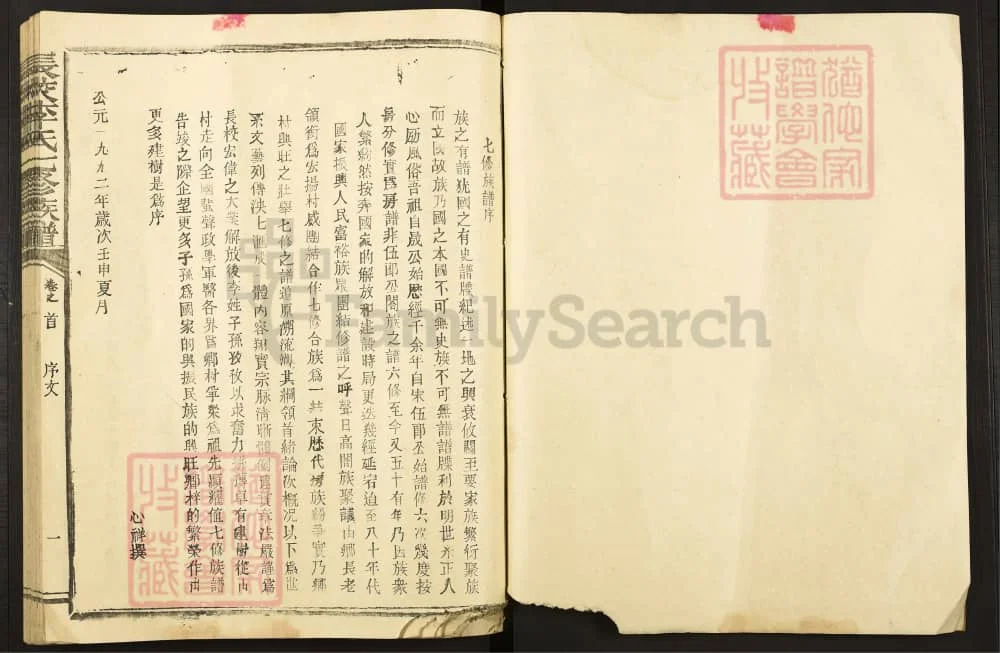 七修族譜序
族之有譜犹國之有史譜牒紀述一地之興衰攸關至要家族繁衍聚族
而立國故族乃國之本國不可無史族不可無譜譜牒利於明世系正人
心励風俗音祖自晟公始歷經千余年自宋伍郎公始譜修六次幾度按
房分修實爲房譜非伍郎公閤族之譜六修至今又五十有年乃因族衆
人繁約然按奔國家的解放和建設時局更迭幾經延宕迫至八十年代
國家振興人民富裕族眾團結修譜之呼聲日高闔族聚議由鄉長老
領銜爲宏揚村威團結合作七修合族爲一共束歷代房族紛爭實乃鄉
村興旺之壯舉七修之譜道原溯流
其綱領首緒論次概况以下爲世
系文藝列傳
七
體内容翔實宗脉清晰
法嚴謹爲
長校宏偉之大業解放後李姓子孫孜孜以求奮力
卓有建樹從山
村走向全國蜚聲政學軍醫各界爲鄉村爭榮爲祖先顯耀值七修族譜
告竣之際企望更多子孫爲國家的興振民族的興旺鄉梓的繁榮作出
更多建樹是爲序
公元一九九二年歲次壬申夏月
心祥撰
長校李氏七修族譜
卷之首
序文
一
猶他家
譜學會
收藏
猶他家
譜學會
收藏
FamilySearch